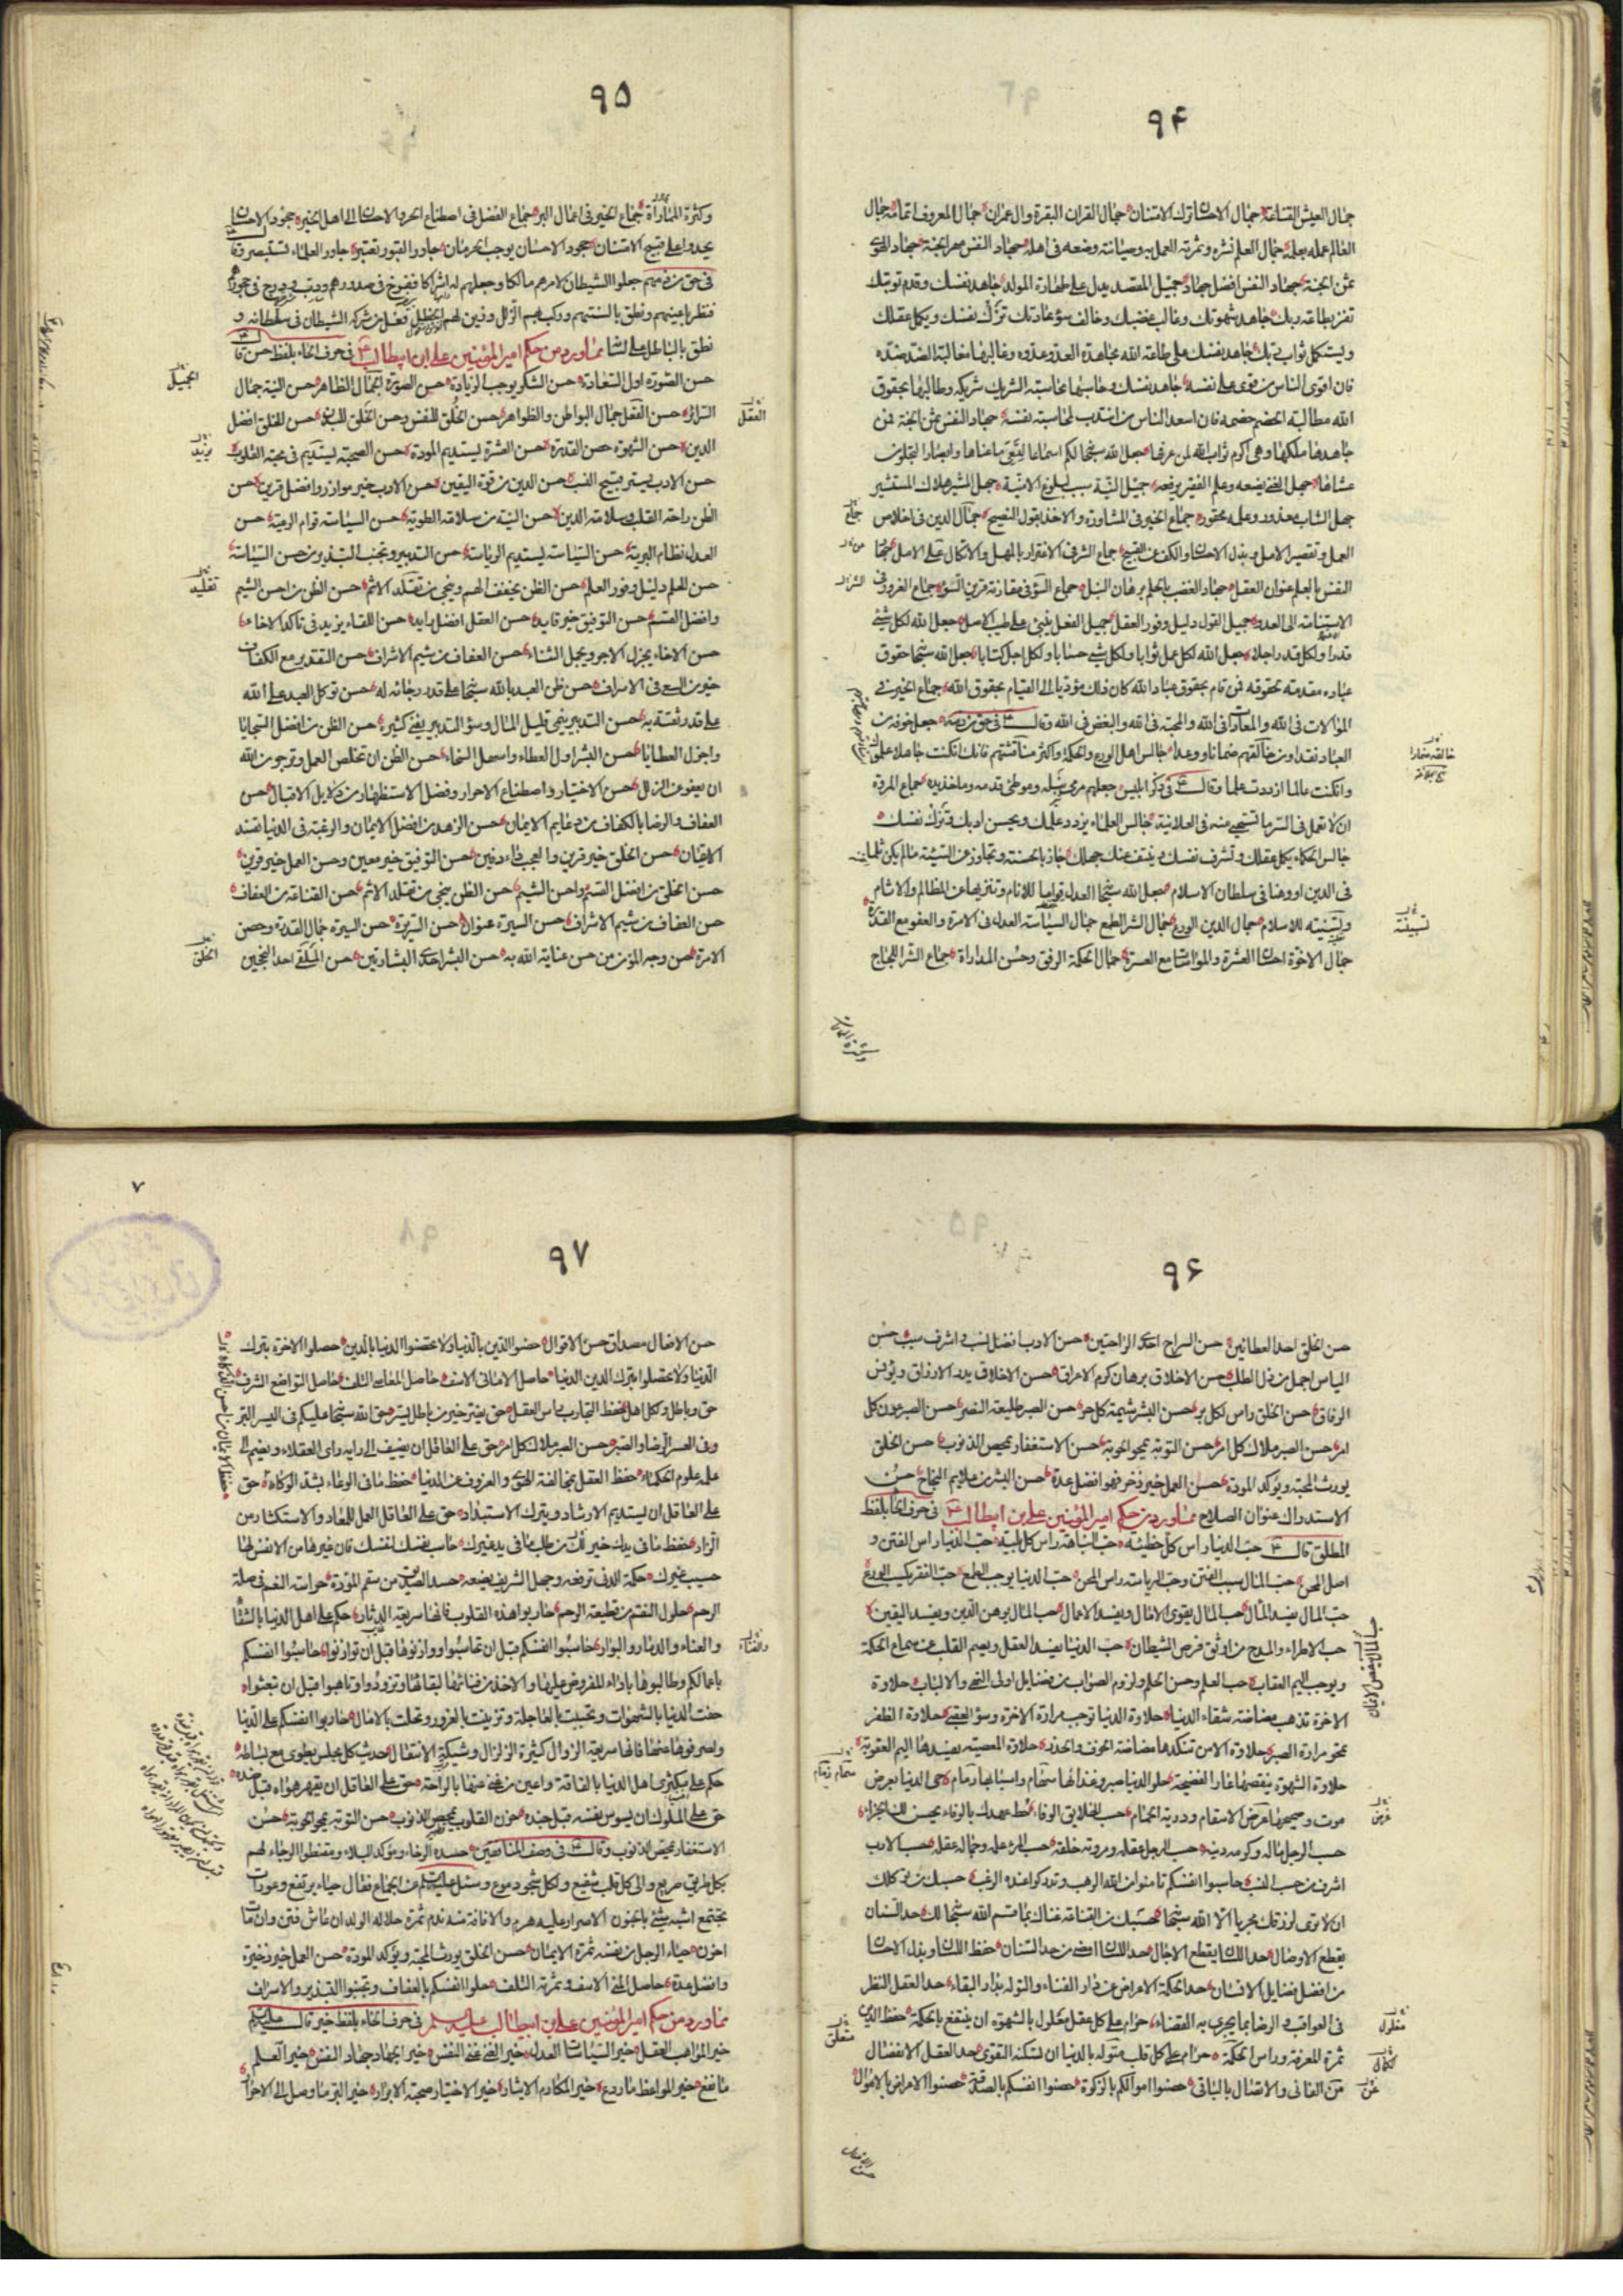 ۹۴
جمال العيش القناعة جمال الاحسان ترك الامتنان جمال القران البقرة وال عمران جمال المعروف اتمامه جمال
العالم عمله بعلمه جمال العلم نشره وثمرته العمل به وصيانته وضعه فى اهله جهاد النفس مهر الجنة جهاد الهوى
ثمن الجنة جهاد النفس افضل جهاد جميل المقصد يدل على طهارة المولد جاهد نفسك وقدم توبتك
تفز بطاعة ربك جاهد شهوتك وغالب غضبك وخالف سوء عادتك تزك نفسك ويكمل عقلك
وليستكمل ثواب ربك جاهد نفسك على طاعة الله مجاهدة العدو عدوه وغالبها مغالبة الضد ضده
فان اقوى الناس من قوى على نفسه جاهد نفسك وحاسبها محاسبة الشريك شريكه وطالبها بحقوق
الله مطالبة الخصم خصمه فان اسعد الناس من انتدب لمحاسبة نفسه جهاد النفس ثمن الجنة فمن
جاهدها ملكها وهى اكرم ثواب الله لمن عرفها جعل الله سبحانه لكم اسماعا لتعى ما عناها وابصارا لتجلو عن
عشاها جهل الغنى يضعه وعلم الفقير يرفعه جميل النية سبب لبلوغ الامنية جهل المشير هلاك المستشير
جهل الشاب معذور وعلمه محقور جماع الخير فى المشاورة والاخذ بقول النصيح جمال الدين فى اخلاص
العمل وتقصير الامل وبذل الاحسان والكف عن القبيح جماع الشر فى الاغترار بالمهل والاتكال على الامل جهاد
النفس بالعلم عنوان العقل جهاد الغضب بالحلم برهان النبل جماع السوء فى مقارنة قرين السوء جماع الغرور فى
الاستنامة الى العدو جميل القول دليل وفور العقل جميل الفعل ينبئ عن طيب الاصل جعل الله لكل شئ
قدرا ولكل قدر اجلا جعل الله لكل عمل ثوابا ولكل شئ حسابا ولكل اجل كتابا جعل الله سبحانه حقوق
عباده مقدمة لحقوقه فمن قام بحقوق عباد الله كان ذلك مؤديا الى القيام بحقوق الله جماع الخير فى
الموالات فى الله والمعادات فى الله والمحبة فى الله والبغض فى الله وقال فى حق من ذمه جعل خوفه من
العباد نقدا ومن خالقهم ضمانا ووعدا جالس اهل الورع والحكمة واكثر مناقشتهم فانك ان كنت جاهلا علموك
وان كنت عالما ازددت علما وقال فى ذكر ابليس جعلهم مرمى نبله وموطئ قدمه وماخذ يده جماع المروة
ان لا تعمل فى السر ما تستحيى منه فى العلانية جالس العلماء يزدد علمك ويحسن ادبك وتزك نفسك
جالس الحكماء يكمل عقلك وتشرف نفسك وينتف عنك جهلك جاز بالحسنة وتجاوز عن السيئة ما لم يكن ثلما
فى الدين او وهنا فى سلطان الاسلام جعل الله سبحانه العدل قواما للانام وتنزيها عن المظالم والاثام
وتسنية للاسلام جمال الدين الورع جمال الشر الطمع جمال السياسة العدل فى الامرة والعفو مع القدرة
جمال الاخوة احسان العشرة والمواساة مع العسرة جمال الحكمة الرفق وحسن المداراة جماع الشر اللجاج
۹۵
وكثرة المماراة جماع الخير فى اعمال البر جماع الفضل فى اصطناع الحر والاحسان الى اهل الخير جحود الاحسان
يحدو على قبيح الامتنان جحود الاحسان يوجب الحرمان جاور القبور تعتبر جاور العلماء تستبصر وقال
فى حق من ذمهم جعلوا الشيطان لامرهم مالكا وجعلهم له اشراكا ففرخ فى صدورهم ودب ودرج فى حجورهم
فنظر باعينهم ونطق بالسنتهم وركب بهم الزلل وزين لهم الخطل فعل من شركه الشيطان فى سلطانه و
نطق بالباطل على لسانه مما ورد من حكم امير المؤمنين على ابن ابيطالب فى حرف الحاء بلفظ حسن قال
حسن الصورة اول السعادة حسن الشكر يوجب الزيادة حسن الصورة الجمال الظاهر حسن النية جمال
السرائر حسن العقل جمال البواطن والظواهر حسن الخلق للنفس وحسن الخلق للبدن حسن الخلق افضل
الدين حسن الشهوة حصن القدرة حسن العشرة يستديم المودة حسن الصحبة يستديم فى محبة القلوب
حسن الادب يستر قبيح النسب حسن الدين من قوة اليقين حسن الادب خير موازر وافضل قرين حسن
الظن راحة القلب وسلامة الدين حسن النية من سلامة الطوية حسن السياسة قوام الرعية حسن
العدل نظام البرية حسن السياسة يستديم الرياسة حسن التدبير وتجنب التبذير من حسن السياسة
حسن الحلم دليل وفور العلم حسن الظن يخفف الهم وينجى من تقلد الاثم حسن الظن من احسن الشيم
وافضل القسم حسن التوفيق خير قايد حسن العقل افضل رايد حسن اللقاء يزيد فى تاكد الاخاء
حسن الاخاء يجزل الاجر ويجمل الثناء حسن العفاف من شيم الاشراف حسن التقدير مع الكفاف
خير من السعى فى الاسراف حسن ظن العبد بالله سبحانه على قدر رجائه له حسن توكل العبد على الله
على قدر ثقته به حسن التدبير ينمى قليل المال وسوء التدبير يفنى كثيره حسن الظن من افضل السجايا
واجزل العطايا حسن البشر اول العطاء واسهل السخاء حسن الظن ان تخلص العمل وترجو من الله
ان يعفو عن الزلل حسن الاختيار واصطناع الاحرار وفضل الاستظهار من دلايل الاقبال حسن
العفاف والرضا بالكفاف من دعايم الايمان حسن الزهد من افضل الايمان والرغبة فى الدنيا تفسد
الايقان حسن الخلق خير قرين والعجب داء دفين حسن التوفيق خير معين وحسن العمل خير قرين
حسن الخلق من افضل القسم واحسن الشيم حسن الظن ينجى من تقلد الاثم حسن القناعة من العفاف
حسن العفاف من شيم الاشراف حسن السيرة عنوان حسن السريرة حسن السيرة جمال القدرة وحصن
الامرة حسن وجه المؤمن من حسن عناية الله به حسن البشر احدى البشارتين حسن الملقى احد النجحين
۹۶
حسن الخلق احد العطائين حسن السراح احدى الراحتين حسن الادب افضل نسب واشرف سبب حسن
الياس اجمل من ذل الطلب حسن الاخلاق برهان كرم الاعراق حسن الاخلاق يدر الارزاق ويونس
الرفاق حسن الخلق راس لكل بر حسن البشر شيمة كل حر حسن الصبر طليعة النصر حسن الصبر عون كل
امر حسن الصبر ملاك كل امر حسن التوبة يمحو الحوبة حسن الاستغفار يمحص الذنوب حسن الخلق
يورث المحبة ويؤكد المودة حسن العمل خير ذخر فهو افضل عدة حسن البشر من علايم النجاح حسن
الاستدراك عنوان الصلاح مما ورد من حكم امير المؤمنين على بن ابيطالب فى حرف الحاء بلفظ
المطلق قال حب الدنيا راس كل خطيئة حب النباهة راس كل بلية حب الدنيا راس الفتن و
اصل المحن حب المال سبب الفتن وحب الرياسة راس المحن حب الدنيا يوجب الطمع حب الفقر يكسب الورع
حب المال يفسد المآل حب المال يقوى الامال ويفسد الاعمال حب المال يوهن الدين ويفسد اليقين
حب الاطراء والمدح من اوثق فرص الشيطان حب الدنيا يفسد العقل ويصم القلب عن سماع الحكمة
ويوجب اليم العقاب حب العلم وحسن الحلم ولزوم الصواب من فضايل اولى النهى والالباب حلاوة
الاخرة تذهب مضاضة شقاء الدنيا حلاوة الدنيا توجب مرارة الاخرة وسوء العقبى حلاوة الظفر
تمحو مرارة الصبر حلاوة الامن تنكدها مضاضة الخوف والحذر حلاوة المعصية يفسدها اليم العقوبة
حلاوة الشهوة ينغصها عار الفضيحة حلو الدنيا صبر وغذائها سمام واسبابها رمام حى الدنيا بعرض
موت وصحيحها غرض الاسقام ودريئة الحمام حسب الخلايق الوفاء حط عهدك بالوفاء يحسن لك الجزاء
حسب الرجل ماله وكرمه دينه حسب الرجل عقله ومروته خلقه حسب المرء علمه وجماله عقله حسب الادب
اشرف من حسب النسب حاسبوا انفسكم تامنوا من الله الرهب وتدركوا عنده الرغب حسبك من توكلك
ان لا ترى لرزقك مجريا الا الله سبحانه حسبك من القناعة غناك بما قسم الله سبحانه لك حد السنان
يقطع الاوصال حد اللسان يقطع الاجال حد اللسان امضى من حد السنان حفظ اللسان وبذل الاحسان
من افضل فضايل الانسان حد الحكمة الاعراض عن دار الفناء والتوله بدار البقاء حد العقل النظر
فى العواقب والرضا بما يجرى به القضاء حرام على كل عقل مغلول بالشهوة ان ينتفع بالحكمة حفظ الدين
ثمرة المعرفة وراس الحكمة حرام على كل قلب متوله بالدنيا ان تسكنه التقوى حد العقل الانفصال
عن الفانى والاتصال بالباقى حصنوا اموالكم بالزكوة حصنوا انفسكم بالصدقة حصنوا الاعراض بالاموال
۹۷
حسن الافعال مصداق حسن الاقوال حصنوا الدين بالدنيا ولا تحصنوا الدنيا بالدين حصلوا الاخرة بترك
الدنيا ولا تحصلوا بترك الدين الدنيا حاصل الامانى الاسف حاصل المعاصى التلف حاصل التواضع الشرف
حق وباطل ولكل اهل حفظ التجارب راس العقل حق يضر خير من باطل يسر حق الله سبحانه عليكم فى اليسر البر
وفى العسر الرضا والصبر حسن الصبر ملاك كل امر حق على العاقل ان يضيف الى رايه راى العقلاء ويضم الى
علمه علوم الحكماء حفظ العقل بمخالفة الهوى والعزوف عن الدنيا حفظ ما فى الوعاء بشد الوكاء حق
على العاقل ان يستديم الارشاد ويترك الاستبداد حق على العاقل العمل للمعاد والاستكثار من
الزاد حفظ ما فى يدك خير لك من طلب ما فى يد غيرك حاسب نفسك لنفسك فان غيرها من الانفس لها
حسيب غيرك حكمة الدنى ترفعه وجهل الشريف يضعه حسد الصديق من سقم المودة حراسة النعم فى صلة
الرحم حلول النقم من قطيعة الرحم حادثوا هذه القلوب فانها سريعة الدثار حكم على اهل الدنيا بالشقاء
والعناء والدمار والبوار حاسبوا انفسكم قبل ان تحاسبوا ووازنوها قبل ان توازنوا حاسبوا انفسكم
باعمالكم وطالبوها باداء المفروض عليها والاخذ من فنائها لبقائها وتزودوا وتاهبوا قبل ان تبعثوا
حفت الدنيا بالشهوات وتحببت بالعاجلة وتزينت بالغرور وتحلت بالامال حاربوا انفسكم على الدنيا
واصرفوها عنها فانها سريعة الزوال كثيرة الزلزال وشيكة الانتقال حديث كل مجلس يطوى مع بساطه
حكم على مكثرى اهل الدنيا بالفاقة واعين من غنى عنها بالراحة حق على العاقل ان يقهر هواه قبل ضده
حق على الملوك ان يسوس نفسه قبل جنده حزن القلوب يمحص الذنوب حسن التوبة يمحو الحوبة حسن
الاستغفار يمحص الذنوب وقال فى وصف المنافقين حسدة الرخاء ومؤكدوا البلاء ومقنطوا الرجاء لهم
بكل طريق صريع والى كل قلب شفيع ولكل شجو دموع وسئل عن الجماع فقال حياء يرتفع وعورات
تجتمع اشبه شئ بالجنون الاصرار عليه هرم والافاقة منه ندم ثمرة حلاله الولد ان عاش فتن وان مات
احزن حياء الرجل من نفسه ثمرة الايمان حسن الخلق يورث المحبة ويؤكد المودة حسن العمل خير ذخيرة
وافضل عدة حاصل المنى الاسف وثمرته التلف حلوا انفسكم بالعفاف وتجنبوا التبذير والاسراف
مما ورد من حكم امير المؤمنين على بن ابيطالب عليه السلم فى حرف الخاء بلفظ خير قال عليه السلم
خير المواهب العقل خير السياسات العدل خير الغنى غنى النفس خير الجهاد جهاد النفس خير العلم
ما نفع خير المواعظ ما ردع خير المكارم الايثار خير الاختيار صحبة الابرار خير البر ما وصل الى الاحرار